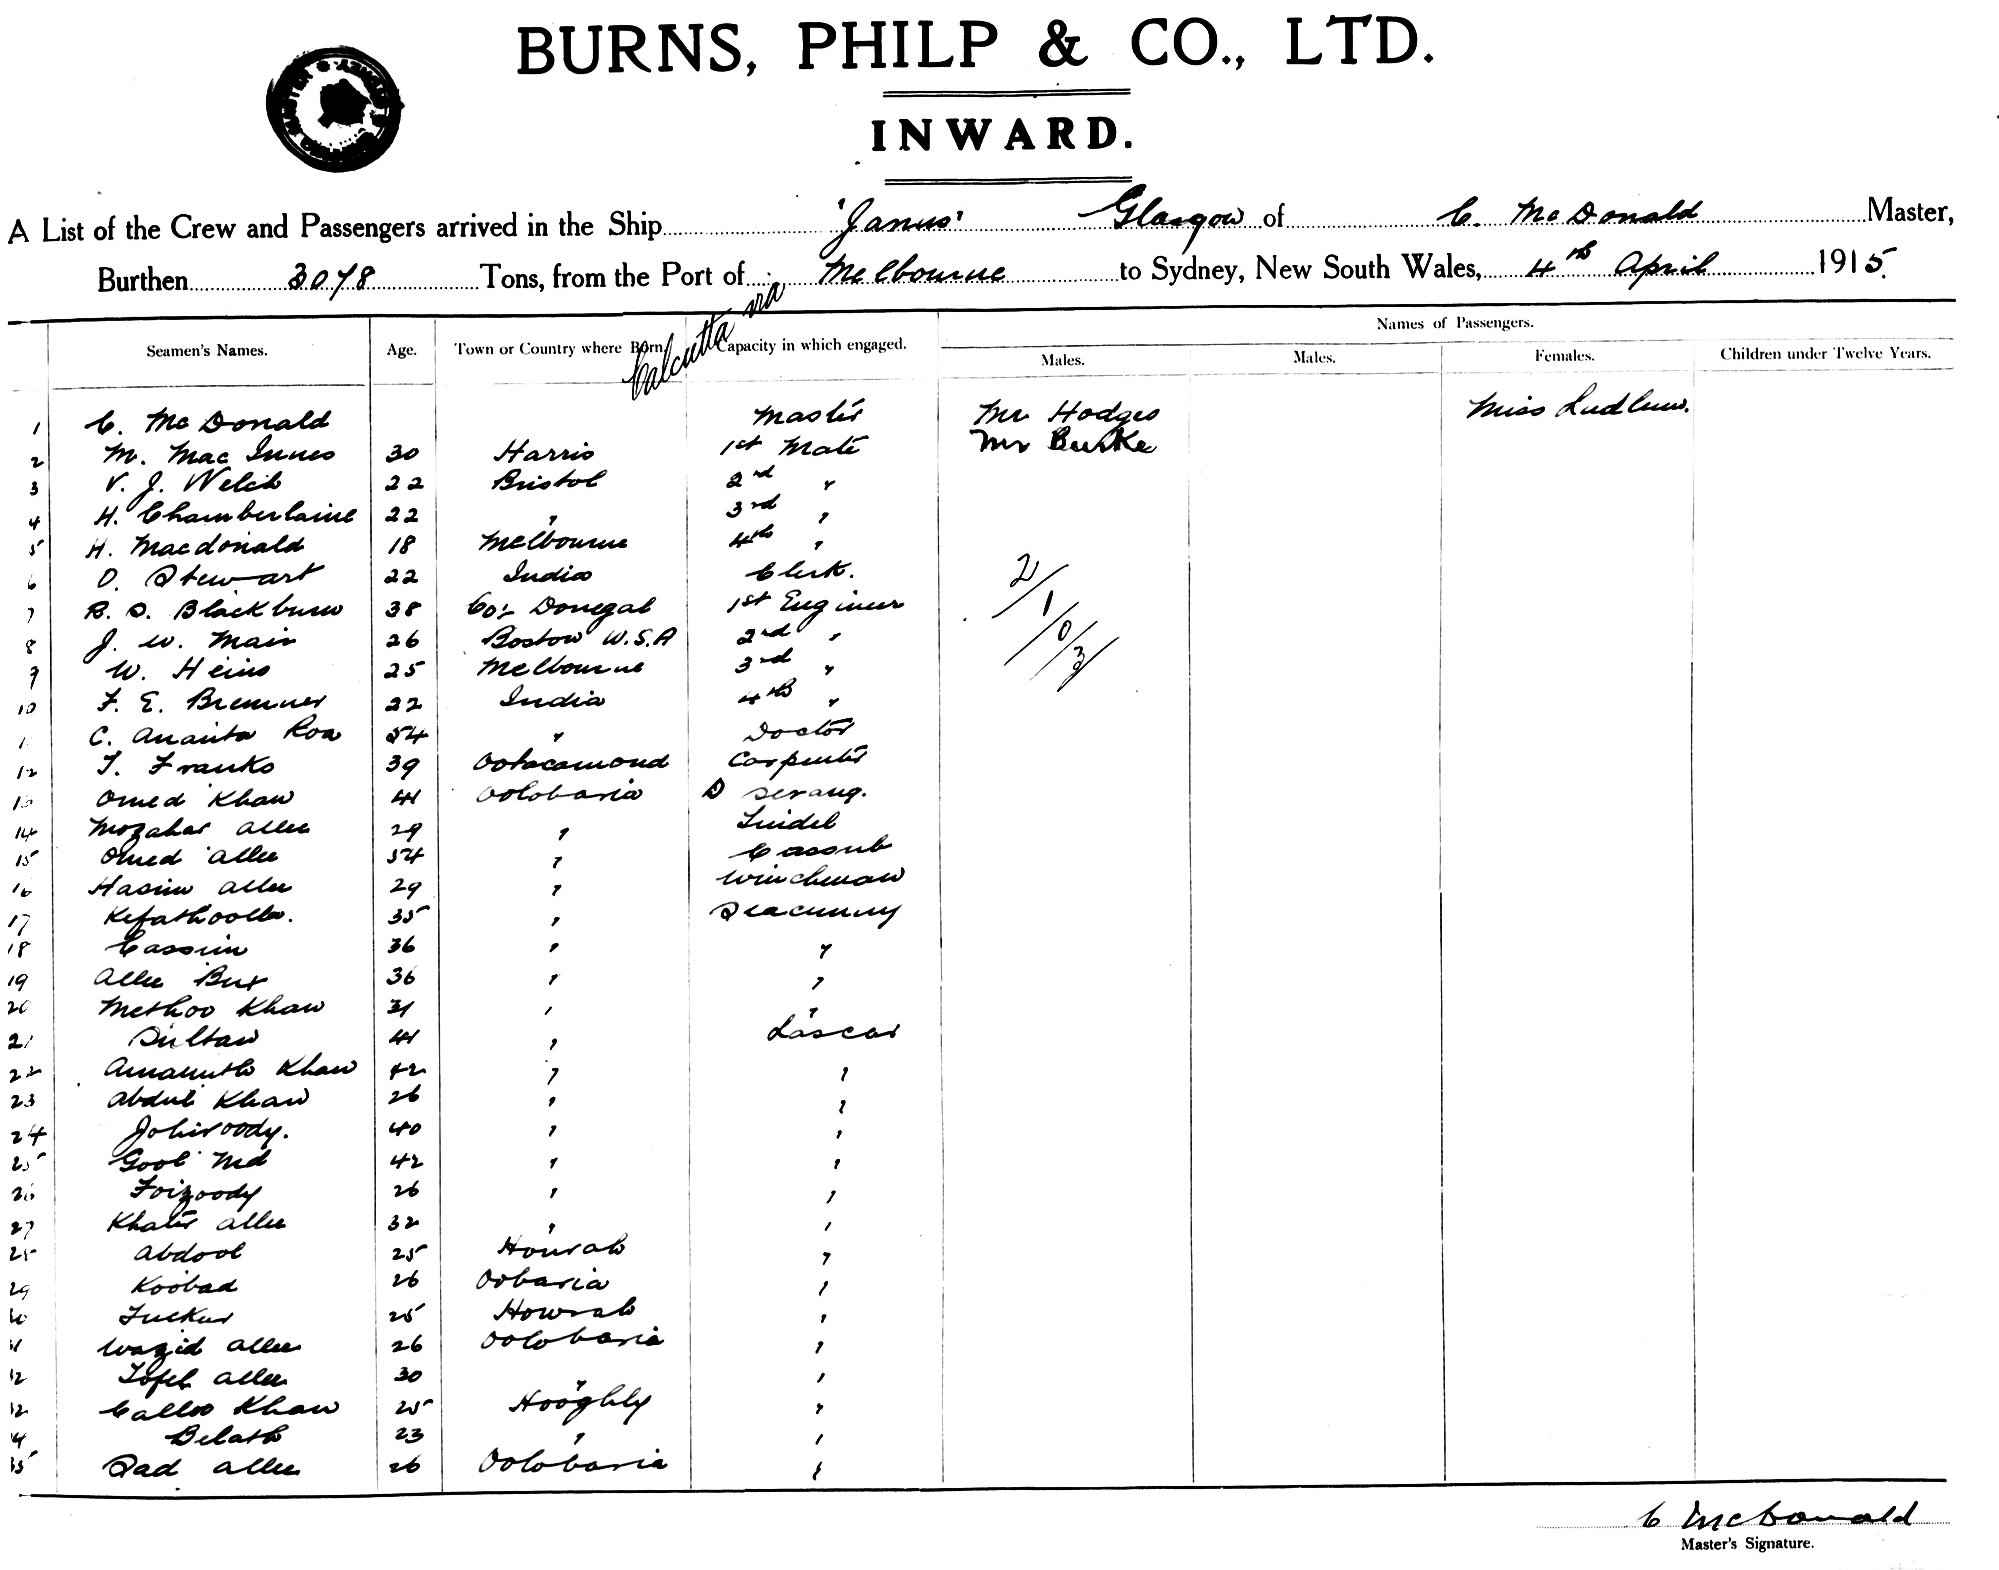 BURNS, PHILP & CO., LTD.
INWARD.
A List of the Crew and Passengers arrived in the Ship 'Janus' Glasgow of C. McDonald Master,
Burthen 3078 Tons, from the Port of Melbourne to Sydney, New South Wales, 4th April 1915.
Calcutta via
Names of Passengers.
Seamen's Names. Age. Town or Country where Born. Capacity in which engaged. Males. Males. Females. Children under Twelve Years.
1 C. McDonald Master Mr Hodges Miss Ludlow.
2 M. MacInnes 30 Harris 1st Mate Mr Burke
3 V. J. Welch 22 Bristol 2nd "
4 H. Chamberlaine 22 " 3rd "
5 H. Macdonald 18 Melbourne 4th "
6 D. Stewart 22 India Clerk.
7 R. S. Blackburn 38 Co: Donegal 1st Engineer
8 J. W. Mair 26 Boston U.S.A 2nd "
9 W. Heins 25 Melbourne 3rd "
10 F. E. Bremner 22 India 4th "
2/1/0/3
1 C. Ananta Roa 54 " Doctor
12 T. Franks 39 Ootacamond Carpenter
13 Omed Khan 41 Oolobaria D Serang.
14 Mozahar Allee 29 " Tindel
15 Omed Allee 54 " Cassub
16 Hasim Allee 29 " Winchman
17 Kefathoolla. 35 " Seacunny
18 Cassim 36 " "
19 Allee Bux 36 " "
20 Methoo Khan 31 " "
21 Sultan 41 " Lascar
22 Amanuth Khan 42 " "
23 Abdul Khan 26 " "
24 Johiroody. 40 " "
25 Gool Md 42 " "
26 Foizoody 26 " "
27 Khater Allee 32 " "
25 Abdool 25 Howrah "
29 Koobad 26 Oobaria "
30 Tucker 25 Howrah "
31 Wazid Allee 26 Oolobaria "
32 Tofel Allee 30 " "
32 Calloo Khan 25 Hooghly "
34 Belath 23 " "
35 Sad Allee 26 Oolobaria "
C McDonald
Master's Signature.